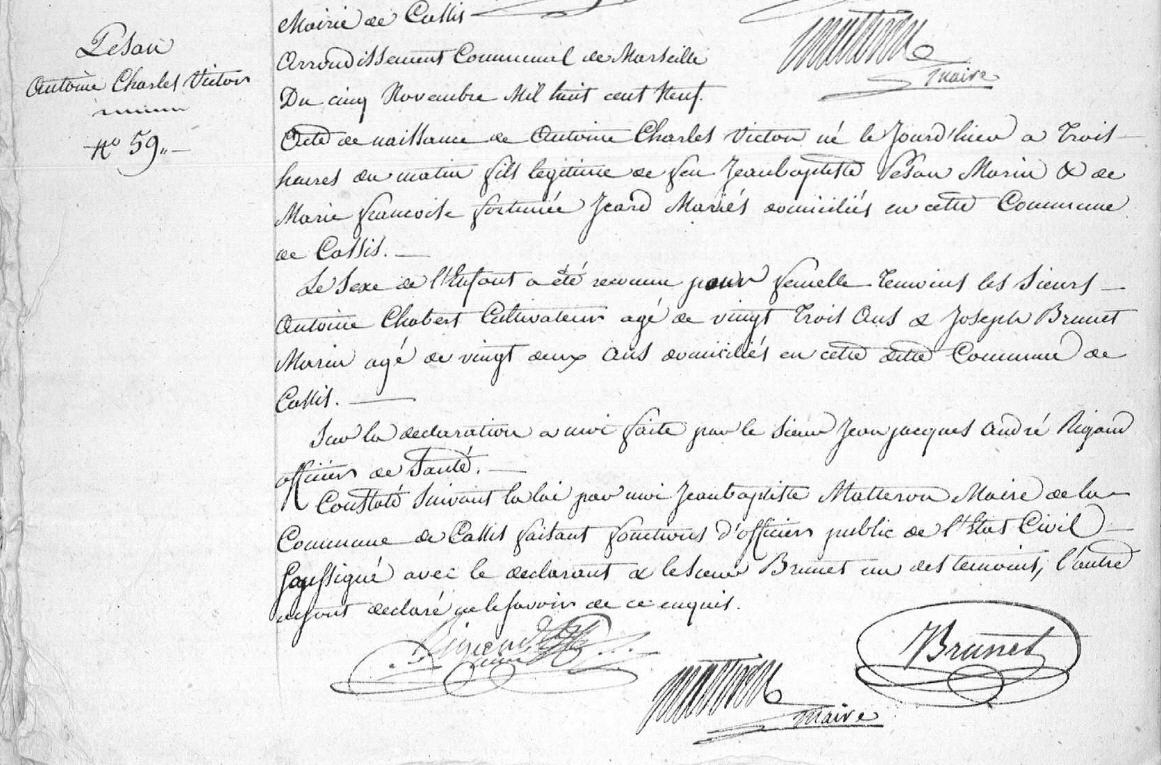 Pesan
Antoine Charles Victor
No 59.
Mairie de Cassis
Arrondissement Communel de Marseille
Du cinq Novembre Mil huit cent Neuf.
maire
Acte de naissance de Antoine Charles Victor né le jourd'hieu a Trois
heures du matin fils legitime de feu Jeanbaptiste Pesan Marin & de
Marie francoise fortunée Jeard Mariés domiciliés en cette Commune
de Cassis.
Le Sexe de l'Enfant a été reconnu pour femelle Temoins les Sieurs
Antoine Chabert Cultivateur agé de vingt Trois Ans & Joseph Brunet
Marin agé de vingt deux ans domiciliés en cette ditte Commune de
Cassis.
Sur la declaration a moi faite par le Sieur Jean jacques André Rigaud
officier de Santé.
Constaté Suivant la loi par moi Jeanbaptiste Matteron Maire de la
Commune de Cassis faisant fonctions d'officier public de l'Etat Civil
Soussigné avec le declarant & le Sieur Brunet un des temoins, l'autre
declaré ne le savoir de ce enquis.
Brunet
maire